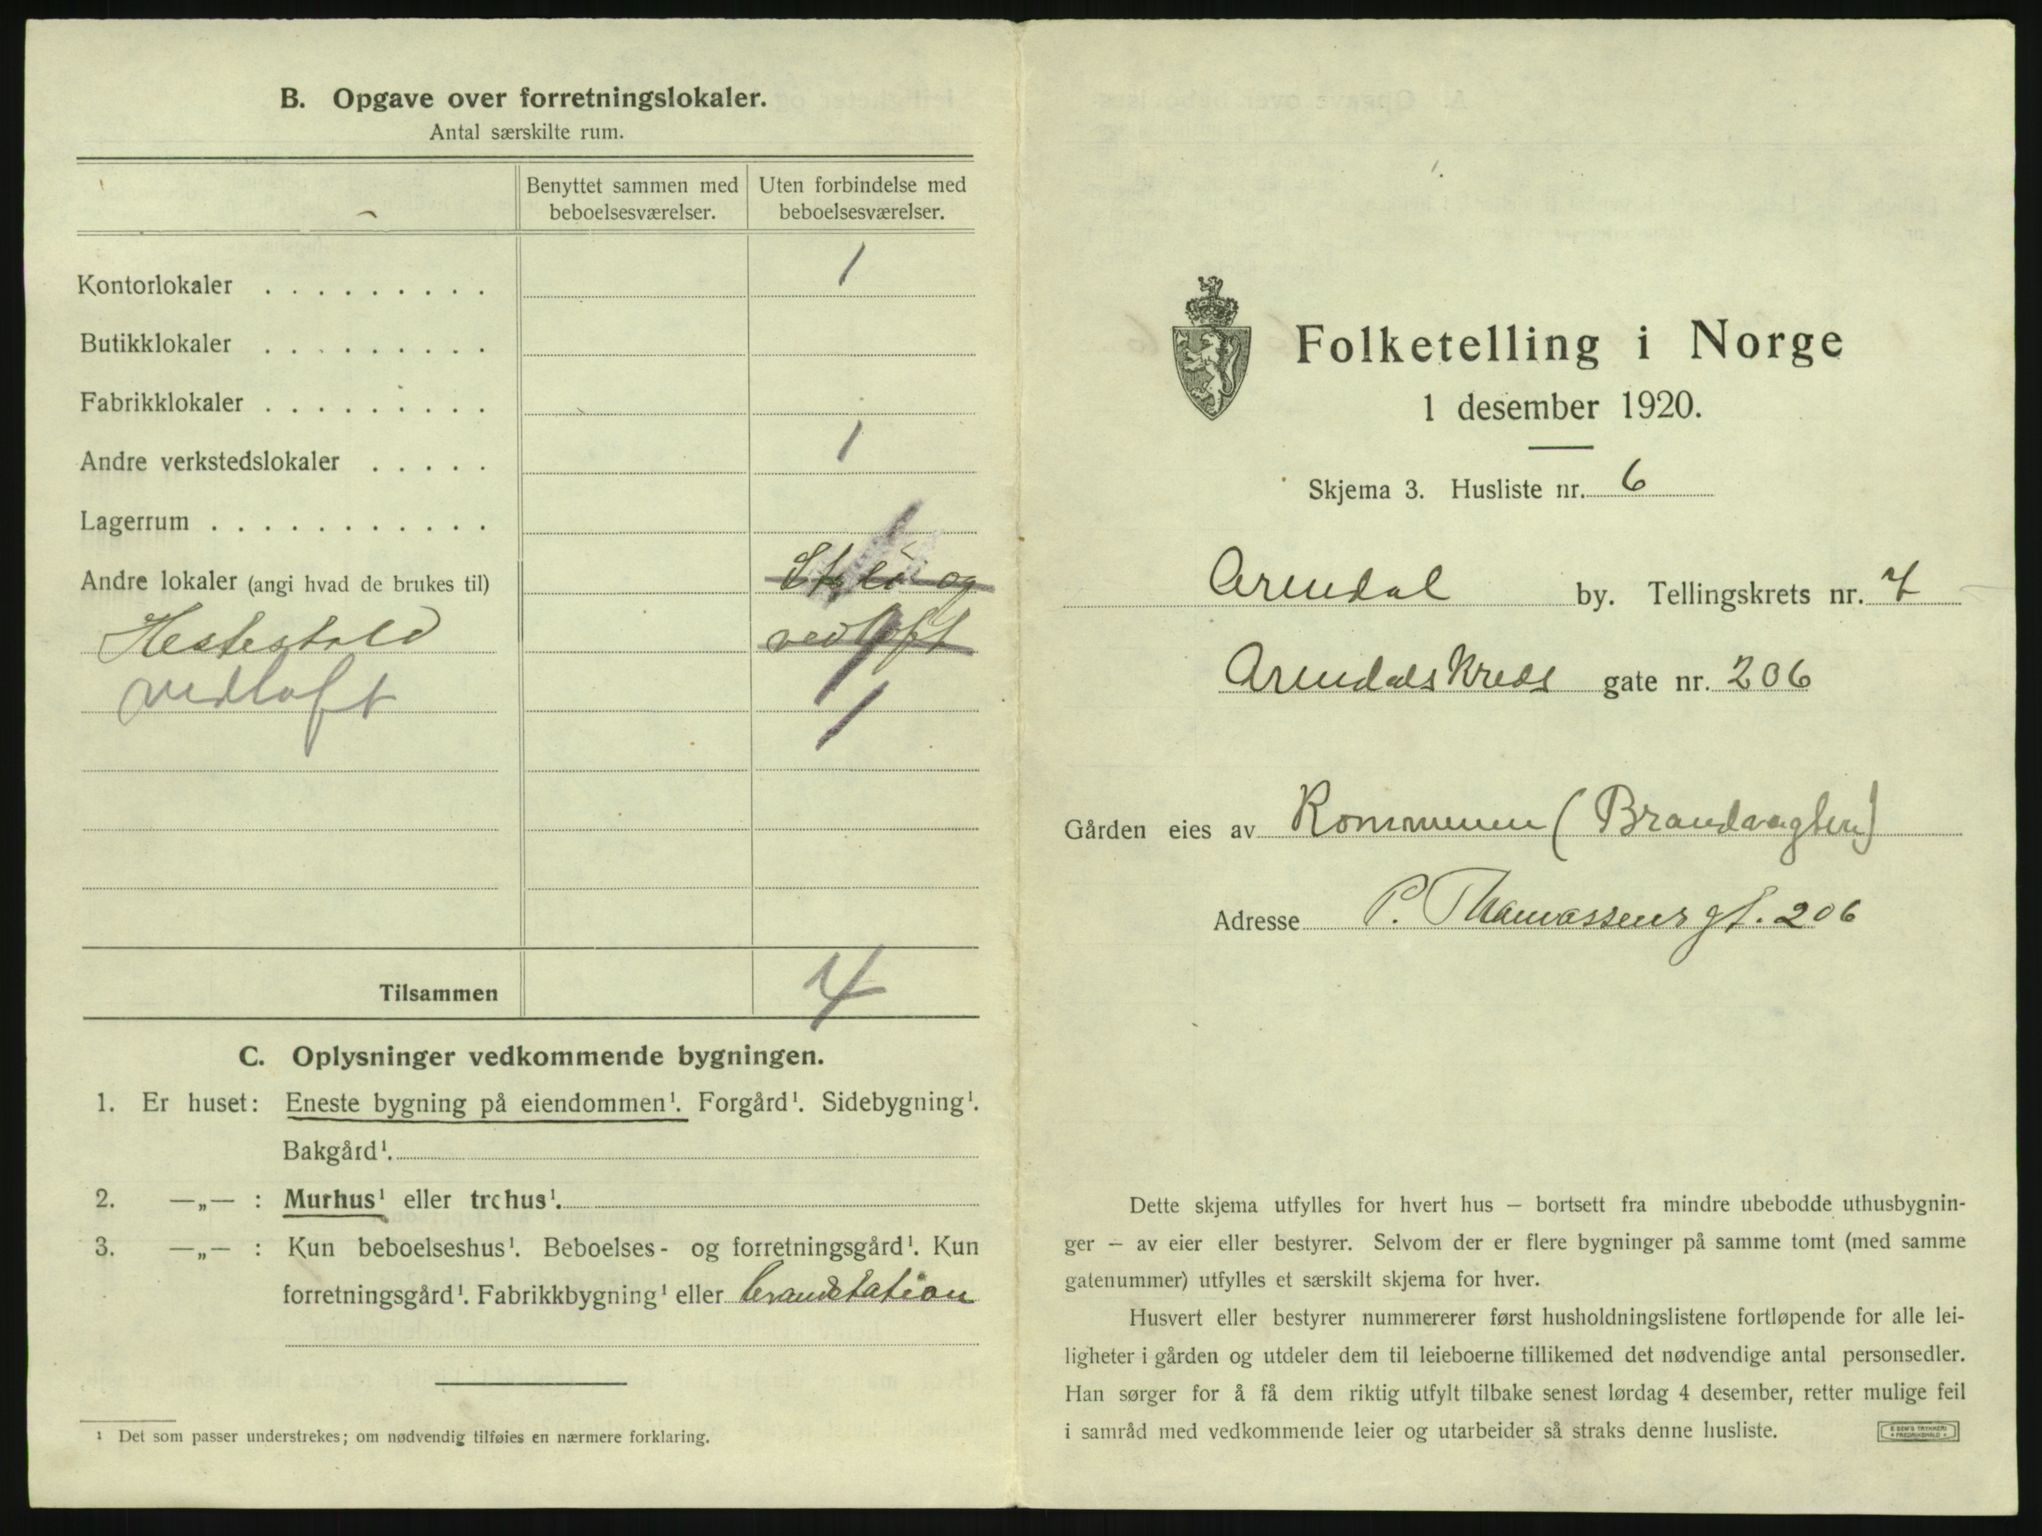 B. Opgave over forretningslokaler.
Antal særskilte rum.
Benyttet sammen med beboelsesværelser.
Uten forbindelse med beboelsesværelser.
Kontorlokaler . . . . . . . . . 1
Butikklokaler . . . . . . . . .
Fabrikklokaler . . . . . . . . .
Andre verkstedslokaler . . . . . 1
Lagerrum . . . . . . . . . . .
Andre lokaler (angi hvad de brukes til) og
Hestestald vedloft 1
vedloft 1
Tilsammen 4
C. Oplysninger vedkommende bygningen.
1. Er huset: Eneste bygning på eiendommen¹. Forgård¹. Sidebygning¹.
Bakgård¹.
2. —„— : Murhus¹ eller trehus¹.
3. —„— : Kun beboelseshus¹. Beboelses- og forretningsgård¹. Kun
forretningsgård¹. Fabrikkbygning¹ eller brandstation
¹ Det som passer understrekes; om nødvendig tilføies en nærmere forklaring.
Folketelling i Norge
1 desember 1920.
Skjema 3. Husliste nr. 6
Arendal by. Tellingskrets nr. 7
Arendals Kreds gate nr. 206
Gården eies av Kommunen (Brandvagten)
Adresse P. Thomassens gt. 206
Dette skjema utfylles for hvert hus – bortsett fra mindre ubebodde uthusbygnin-
ger – av eier eller bestyrer. Selvom der er flere bygninger på samme tomt (med samme
gatenummer) utfylles et særskilt skjema for hver.
Husvert eller bestyrer nummererer først husholdningslistene fortløpende for alle lei-
ligheter i gården og utdeler dem til leieboerne tillikemed det nødvendige antal personsedler.
Han sørger for å få dem riktig utfylt tilbake senest lørdag 4 desember, retter mulige feil
i samråd med vedkommende leier og utarbeider så straks denne husliste.